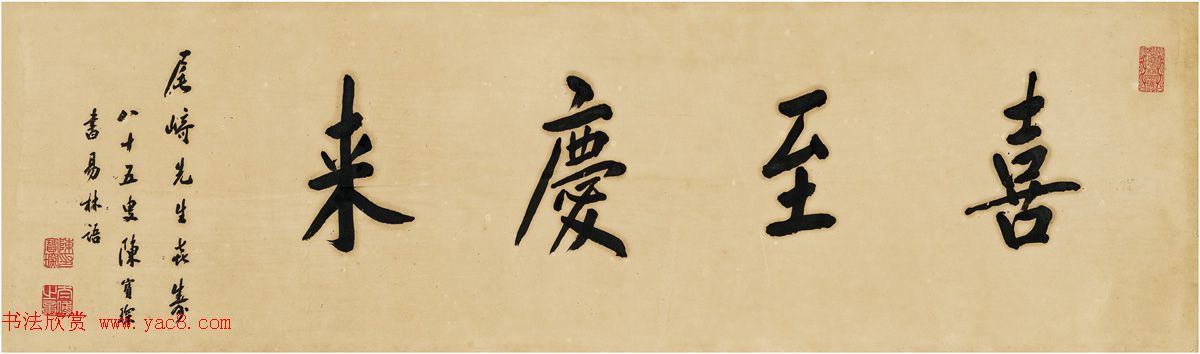 喜至慶来
尾崎先生㐂壽
八十五叟陳寶琛
書易林語
书法欣赏 www.yac8.com